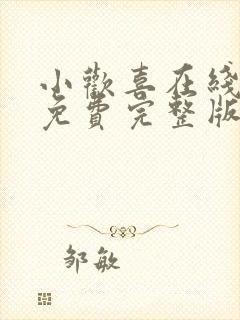 小歡喜在綫
免費完整版
邹敏